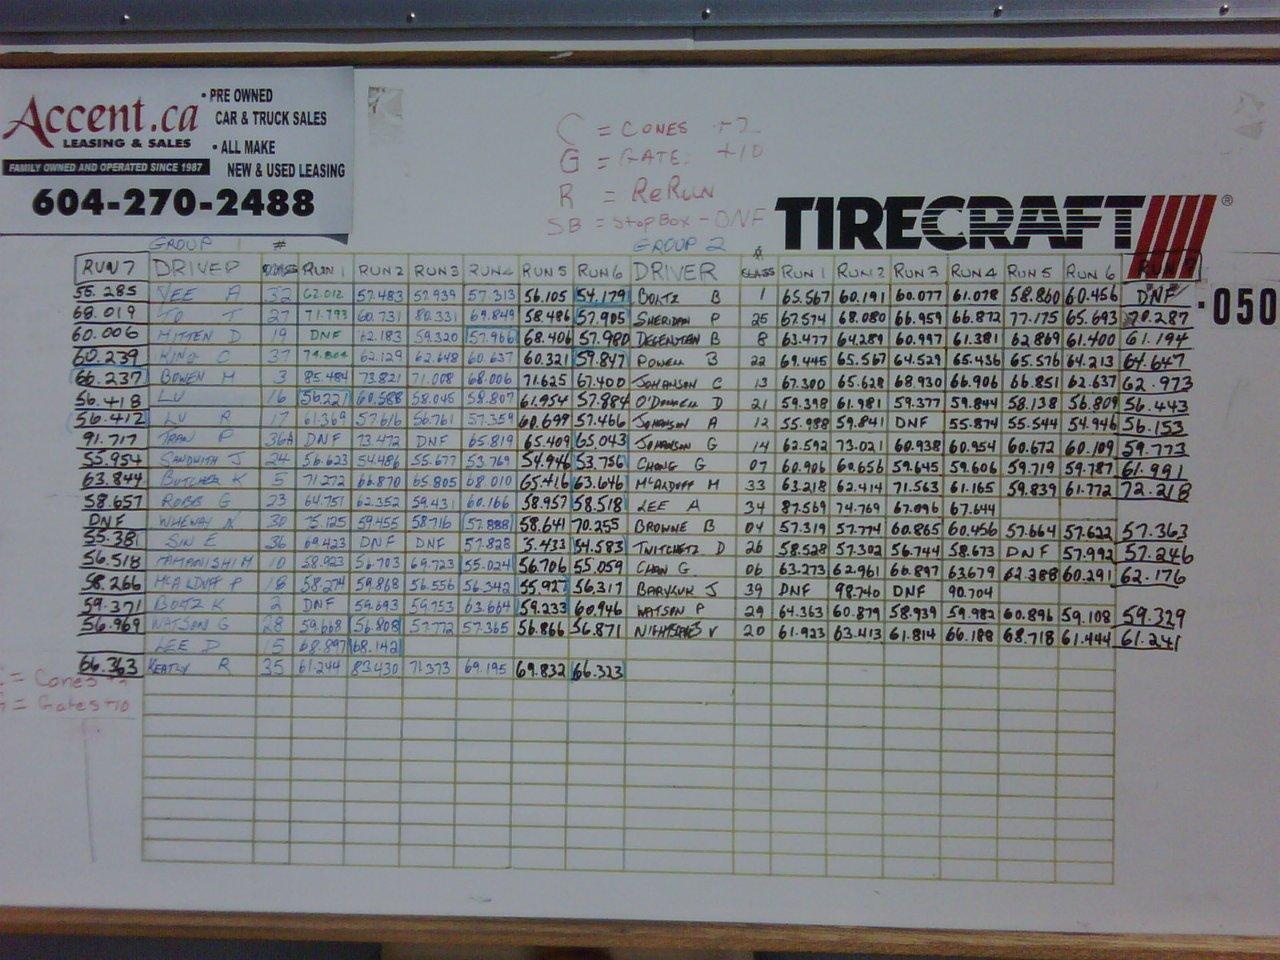 Accent.ca
LEASING & SALES
FAMILY OWNED AND OPERATED SINCE 1987
• PRE OWNED
CAR & TRUCK SALES
• ALL MAKE
NEW & USED LEASING
604-270-2488
C = CONES +2
G = GATE. +10
R = ReRUN
SB = StopBox - DNF
TIRECRAFT ®
GROUP 1 # GROUP 2 #
RUN 7 DRIVER CLASS RUN 1 RUN 2 RUN 3 RUN 4 RUN 5 RUN 6 DRIVER CLASS RUN 1 RUN 2 RUN 3 RUN 4 RUN 5 RUN 6 RUN 7
55.285 YEE A 32 62.012 57.483 57.939 57.313 56.105 54.179 BOLTZ B 1 65.567 60.191 60.077 61.078 58.860 60.456 DNF
68.019 TO T 27 71.793 60.731 80.331 69.849 58.486 57.905 SHERIDAN P 25 67.574 68.080 66.959 66.872 77.175 65.693 70.287
60.006 HITTEN D 19 DNF 62.183 59.320 57.966 68.406 57.980 DEGENSTEIN B 8 63.477 64.289 60.997 61.381 62.869 61.400 61.194
60.239 KING C 37 62.129 62.648 60.637 60.321 59.847 POWELL B 22 69.445 65.567 64.529 65.436 65.576 64.213 64.647
66.237 BOWEN M 3 85.484 73.821 71.008 68.006 71.625 67.400 JOHANSON C 13 67.300 65.628 68.930 66.906 66.851 62.637 62.973
56.418 LU 16 56.221 60.588 58.045 58.807 61.954 57.984 O'DONNELL D 21 59.398 61.981 59.377 59.844 58.138 56.809 56.443
56.412 LV R 17 61.369 57.616 56.761 57.359 60.699 57.466 JOHANSON A 12 55.988 59.841 DNF 55.874 55.544 54.946 56.153
91.717 TRAN P 36A DNF 73.472 DNF 65.819 65.409 65.043 JOHANSON G 14 62.592 73.021 60.938 60.954 60.672 60.109 59.773
55.954 SANDWITH J 24 56.623 54.486 55.677 53.769 54.946 53.756 CHONG G 07 60.906 60.656 59.645 59.606 59.719 59.787 61.991
63.844 BUTCHER K 5 71.272 66.870 65.805 68.010 65.416 63.646 McALDUFF M 33 63.218 62.414 71.563 61.165 59.839 61.772 72.218
58.657 ROBB G 23 64.751 62.352 59.431 60.166 58.957 58.518 LEE A 34 87.569 74.769 67.096 67.644
DNF WHEWAY N 30 75.125 59.455 58.716 57.888 58.641 70.255 BROWNE B 04 57.319 57.774 60.865 60.456 57.664 57.622 57.363
55.381 SIN E 36 69.423 DNF DNF 57.828 5.433 54.583 TWITCHETZ D 26 58.528 57.302 56.744 58.673 DNF 57.992 57.246
56.518 YAMANISHI M 10 58.923 56.703 69.723 55.024 56.706 55.059 CHAN G 06 63.273 62.961 66.897 63.679 62.288 60.291 62.176
58.266 McALDUFF P 18 58.274 59.868 56.556 56.342 55.927 56.317 BARYLUK J 39 DNF 98.740 DNF 90.704
59.371 BOLTZ K 2 DNF 59.693 59.753 63.664 59.233 60.946 WATSON P 29 64.363 60.879 58.939 59.982 60.896 59.108 59.329
56.969 WATSON G 28 59.668 56.808 57.772 57.365 56.866 56.871 V 20 61.923 63.413 61.814 66.188 68.718 61.444 61.241
LEE D 15 68.897 68.142
66.363 KEATLY R 35 61.244 83.430 71.373 69.195 69.832 66.323
= Cones +2
= Gates +10
.050